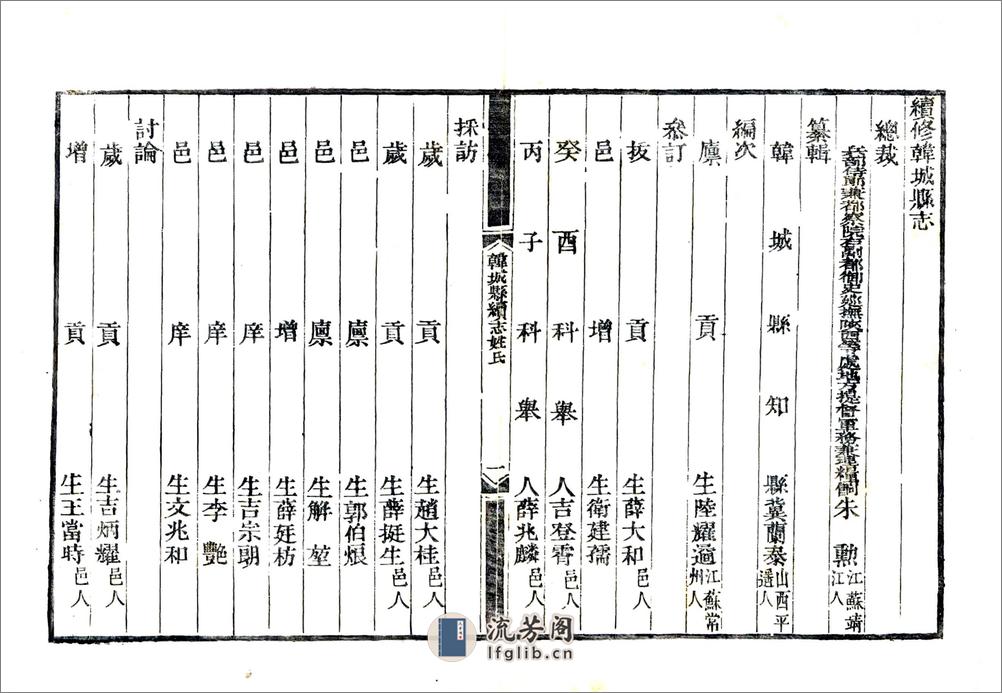 續修韓城縣志
總裁
兵部侍郎兼都察院右副都御史巡撫陝西等處地方提督軍務兼理糧餉朱 勳江蘇靖江人
纂輯
韓城縣知縣冀蘭泰山西平遙人
編次
廪貢生陸耀遹江蘇常州人
叅訂
拔貢生薛大和邑人
邑增生衛建孺
癸酉科舉人吉登霄邑人
丙子科舉人薛兆麟
韓城縣續志姓氏
一
採訪
歲貢生趙大桂邑人
歲貢生薛挺生邑人
邑廪生郭伯烺
邑廪生解堃
邑增生薛廷枋
邑庠生吉宗朝
邑庠生李艷
邑庠生文兆和
討論
歲貢生吉炳耀邑人
增貢生王當時邑人
流芳阁
lfglib.cn